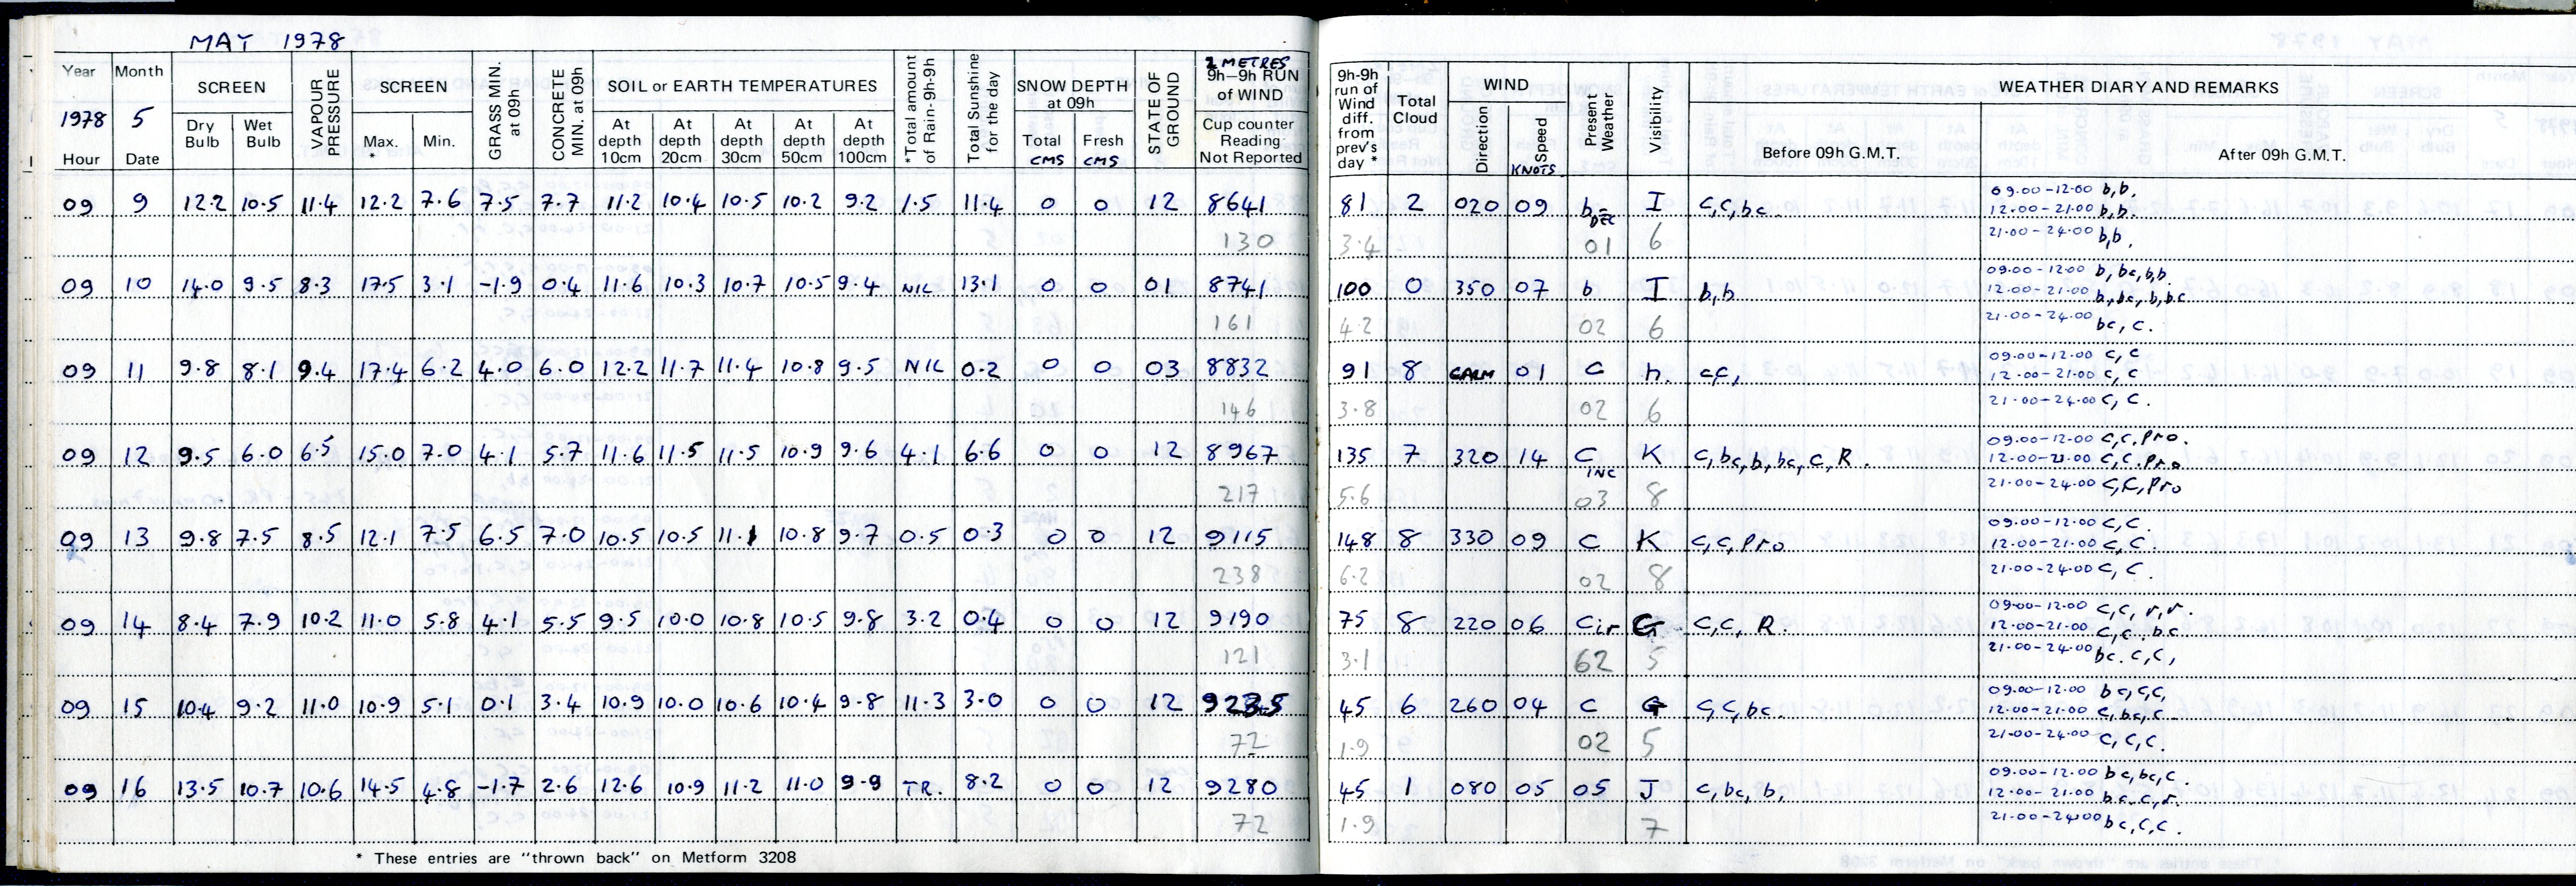 MAY 1978
Year Month SCREEN VAPOUR PRESSURE SCREEN GRASS MIN. at 09h CONCRETE MIN. at 09h SOIL or EARTH TEMPERATURES *Total amount of Rain-9h-9h Total Sunshine for the day SNOW DEPTH at 09h STATE OF GROUND 2 METRES 9h-9h RUN of WIND 9h-9h run of Wind diff. from prev's day * Total Cloud WIND Present Weather Visibility WEATHER DIARY AND REMARKS
1978 5 Dry Bulb Wet Bulb Max. * Min. At depth 10cm At depth 20cm At depth 30cm At depth 50cm At depth 100cm Total CMS Fresh CMS Cup counter Reading Not Reported Direction Speed KNOTS Before 09h G.M.T. After 09h G.M.T.
Hour Date
09 9 12.2 10.5 11.4 12.2 7.6 7.5 7.7 11.2 10.4 10.5 10.2 9.2 1.5 11.4 0 0 12 8641 81 2 020 09 b DEC I c,c,bc. 09.00-12.00 b,b.
12.00-21.00 b,b.
130 3.4 01 6 21.00-24.00 b,b.
09 10 14.0 9.5 8.3 17.5 3.1 -1.9 0.4 11.6 10.3 10.7 10.5 9.4 NIL 13.1 0 0 01 8741 100 0 350 07 b I b,b 09.00-12.00 b,bc,b,b.
12.00-21.00 b,bc,b,bc
161 4.2 02 6 21.00-24.00 bc,c.
09 11 9.8 8.1 9.4 17.4 6.2 4.0 6.0 12.2 11.7 11.4 10.8 9.5 NIL 0.2 0 0 03 8832 91 8 CALM 01 C h. c,c, 09.00-12.00 c,c
12.00-21.00 c,c
146 3.8 02 6 21.00-24.00 c,c.
09 12 9.5 6.0 6.5 15.0 7.0 4.1 5.7 11.6 11.5 11.5 10.9 9.6 4.1 6.6 0 0 12 8967 135 7 320 14 C INC K c,bc,b,bc,c,R. 09.00-12.00 c,c,pro.
12.00-21.00 c,c.pro
217 5.6 03 8 21.00-24.00 c,c,pro
09 13 9.8 7.5 8.5 12.1 7.5 6.5 7.0 10.5 10.5 11.1 10.8 9.7 0.5 0.3 0 0 12 9115 148 8 330 09 C K c,c,pro 09.00-12.00 c,c.
12.00-21.00 c,c.
238 6.2 02 8 21.00-24.00 c,c.
09 14 8.4 7.9 10.2 11.0 5.8 4.1 5.5 9.5 10.0 10.8 10.5 9.8 3.2 0.4 0 0 12 9190 75 8 220 06 Cir G c,c,R. 09.00-12.00 c,c,r,r.
12.00-21.00 c,c.bc
121 3.1 62 5 21.00-24.00 bc.c,c,
09 15 10.4 9.2 11.0 10.9 5.1 0.1 3.4 10.9 10.0 10.6 10.4 9.8 11.3 3.0 0 0 12 9235 45 6 260 04 C G c,c,bc. 09.00-12.00 bc,c,c,
12.00-21.00 c,bc,c
72 1.9 02 5 21.00-24.00 c,c,c.
09 16 13.5 10.7 10.6 14.5 4.8 -1.7 2.6 12.6 10.9 11.2 11.0 9.9 TR. 8.2 0 0 12 9280 45 1 080 05 05 J c,bc,b, 09.00-12.00 bc,bc,c.
12.00-21.00 bc.c,r.
72 1.9 7 21.00-24.00 bc,c,c.
* These entries are "thrown back" on Metform 3208